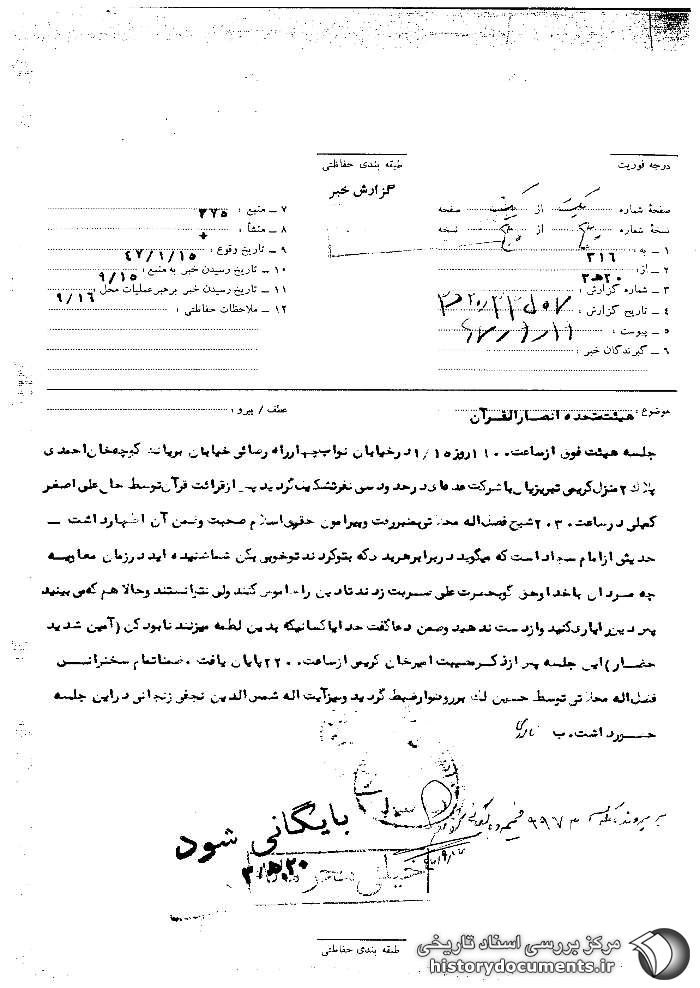 درجه فوریت
طبقه بندی حفاظتی
گزارش خبر
صفحهٔ شماره یک از یک صفحه
نسخهٔ شماره از نسخه
۱ ـ به : ۳۱۶
۲ ـ از : ۲۰ه۳
۳ ـ شماره گزارش :
۴ ـ تاریخ گزارش :
۵ ـ پیوست :
۶ ـ گیرندگان خبر :
۷ ـ منبع : ۳۷۵
۸ ـ منشأ : +
۹ ـ تاریخ وقوع : ۴۷/۱/۱۵
۱۰ ـ تاریخ رسیدن خبر به منبع : ۹/۱۵
۱۱ ـ تاریخ رسیدن خبر برهبر عملیات محل : ۹/۱۶
۱۲ ـ ملاحظات حفاظتی :
موضوع : هیئت متحده انصارالقرآن
عطف / پیرو :
جلسه هیئت فوق از ساعت روز ۱/۱۵ در خیابان نواب چهارراه رضائی خیابان بریانک کوچه خان احمدی
پلاک ۲ منزل کریمی تبریزیان با شرکت عده‌ای در حدود سی نفر تشکیل گردید پس از قرائت قرآن توسط حاج علی اصغر
در ساعت ۲۰۳۰ شیخ فضل‌اله محلاتی بمنبر رفت و پیرامون حقیقی اسلام صحبت و ضمن آن اظهار داشت ـ
حدیثی از امام سجاد است که میگوید در برابر هر بدی که بتو کردند تو خوبی بکن شما شنیده اید در زمان معاویه
چه مردان با خدا و حق گو بحضرت علی ضربت زدند تا دین را خاموش کنند ولی نتوانستند و حالا هم که می بینید
پس دین را یاری کنید و از دست ندهید و ضمن دعا گفت خدایا کسانیکه بدین لطمه میزنند نابود کن (آمین شدید
حضار) این جلسه پس از ذکر مصیبت امیرخان کریمی از ساعت ۲۲۰۰ پایان یافت . ضمناً تمام سخنرانی
فضل‌اله محلاتی توسط حسین بر روی نوار ضبط گردید و نیز آیت اله شمس الدین نجفی زنجانی در این جلسه
حضور داشت. ب
بایگانی شود
خیلی محرمانه
۲۰ه۳
طبقه بندی حفاظتی
مرکز بررسی اسناد تاریخی
historydocuments.ir